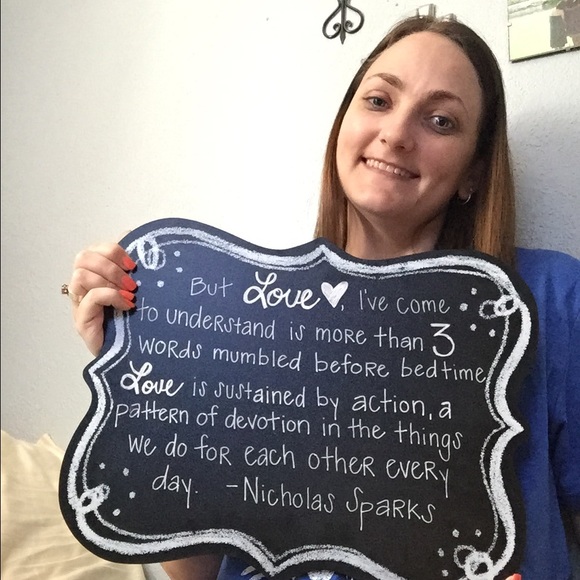 But Love♥, I've come
to understand is more than 3
words mumbled before bedtime
Love is sustained by action, a
pattern of devotion in the things
we do for each other every
day. -Nicholas Sparks